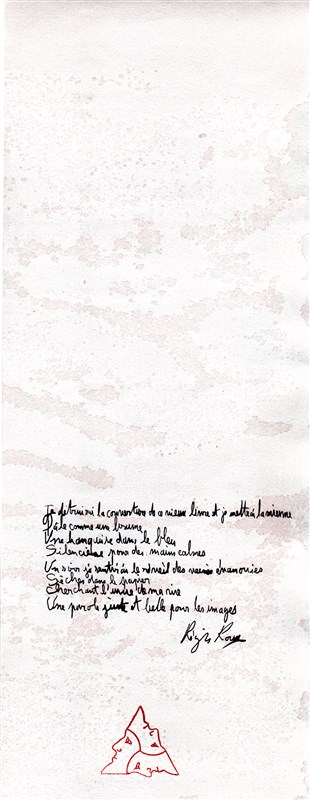 Je détruirai la couverture de ce vieux livre et je mettrai la mienne
Pâle comme un brume,
Une banquise dans le bleu
Silencieuse pour des mains calmes
Un soir je sentirai le réveil des veines évanouies
Gâcher dans le papier
Cherchant l'encre de ma rive
Une parole juste et belle pour les images
Régis Roux